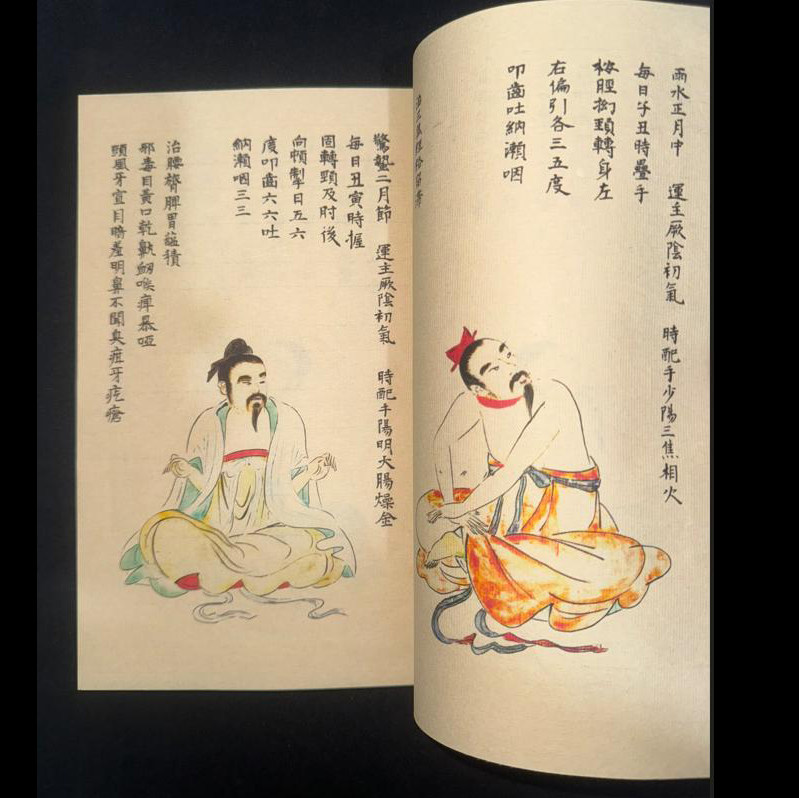 雨水正月中 運主厥陰初氣 時配手少陽三焦相火
每日子丑時疊手
按脛拗頸轉身左
右偏引各三五度
叩齒吐納漱咽
驚蟄二月節 運主厥陰初氣 時配手陽明大腸燥金
每日丑寅時握
固轉頸及肘後
向頓掣日五六
度叩齒六六吐
納漱咽三三
治腰膂脾胃蘊積
邪毒目黃口乾鼽衄喉痺暴啞
頭風牙宣目暗羞明鼻不聞臭疽牙疙瘡